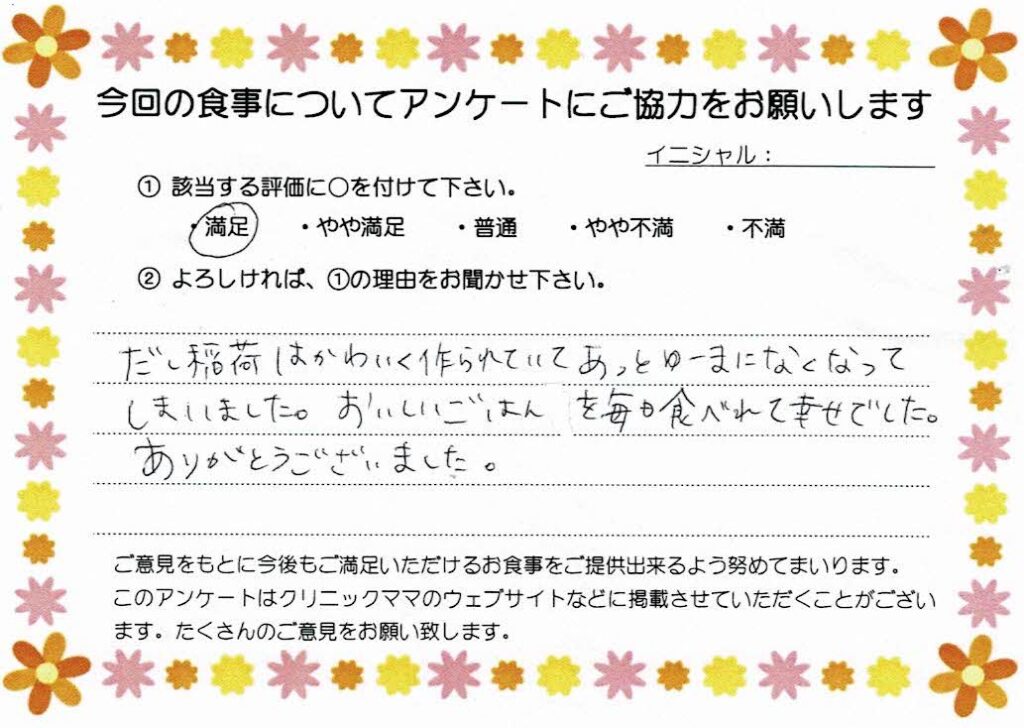 今回の食事についてアンケートにご協力をお願いします
イニシャル：
① 該当する評価に○を付けて下さい。
・満足 ・やや満足 ・普通 ・やや不満 ・不満
② よろしければ、①の理由をお聞かせ下さい。
だし稲荷はかわいく作られていてあっとゆーまになくなって
しまいました。おいしいごはんを毎日食べれて幸せでした。
ありがとうございました。
ご意見をもとに今後もご満足いただけるお食事をご提供出来るよう努めてまいります。
このアンケートはクリニックママのウェブサイトなどに掲載させていただくことがござい
ます。たくさんのご意見をお願い致します。